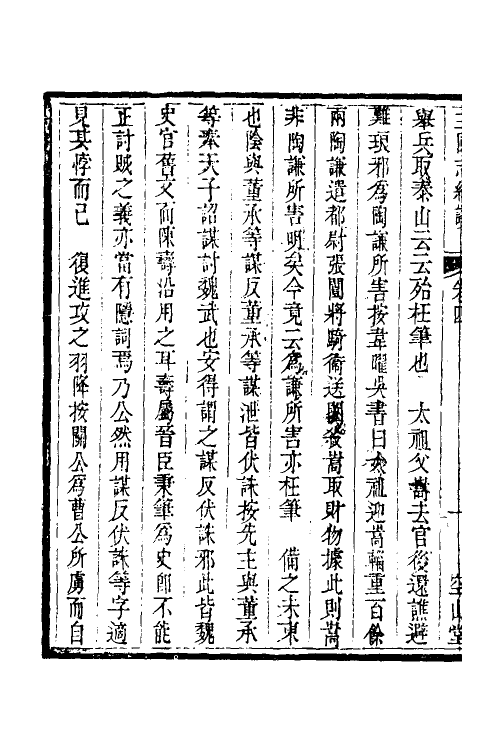 三國志經論 卷四 一 空山堂
舉兵取泰山云云殆枉筆也 太祖父嵩去官後還譙避
難琅邪為陶謙所害按韋曜吳書曰太祖迎嵩輜重百餘
兩陶謙遣都尉張闓將騎衛送闓殺嵩取財物據此則嵩
非陶謙所害明矣今竟云為謙所害亦枉筆 備之未東
也陰與董承等謀反董承等謀泄皆伏誅按先主與董承
等奉天子詔謀討魏武也安得謂之謀反伏誅邪此皆魏
史官舊文而陳壽沿用之耳壽屬晉臣秉筆為史即不能
正討賊之義亦當有隱詞焉乃公然用謀反伏誅等字適
見其悖而已 復進攻之羽降按關公為曹公所虜而自